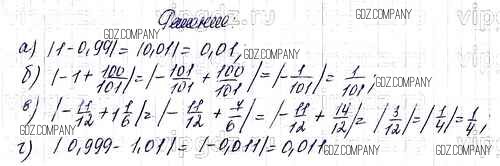 Решение.
GDZ.COMPANY
а) |1-0,99| = |0,01| = 0,01;
GDZ.COMPANY
б) |-1+100/101| = |-101/101+100/101| = |-1/101| = 1/101;
GDZ.COMPANY
в) |-11/12+1 1/6| = |-11/12+7/6| = |-11/12+14/12| = |3/12| = |1/4| = 1/4;
GDZ.COMPANY
г) |0,999-1,01| = |-0,011| = 0,011.
GDZ.COMPANY